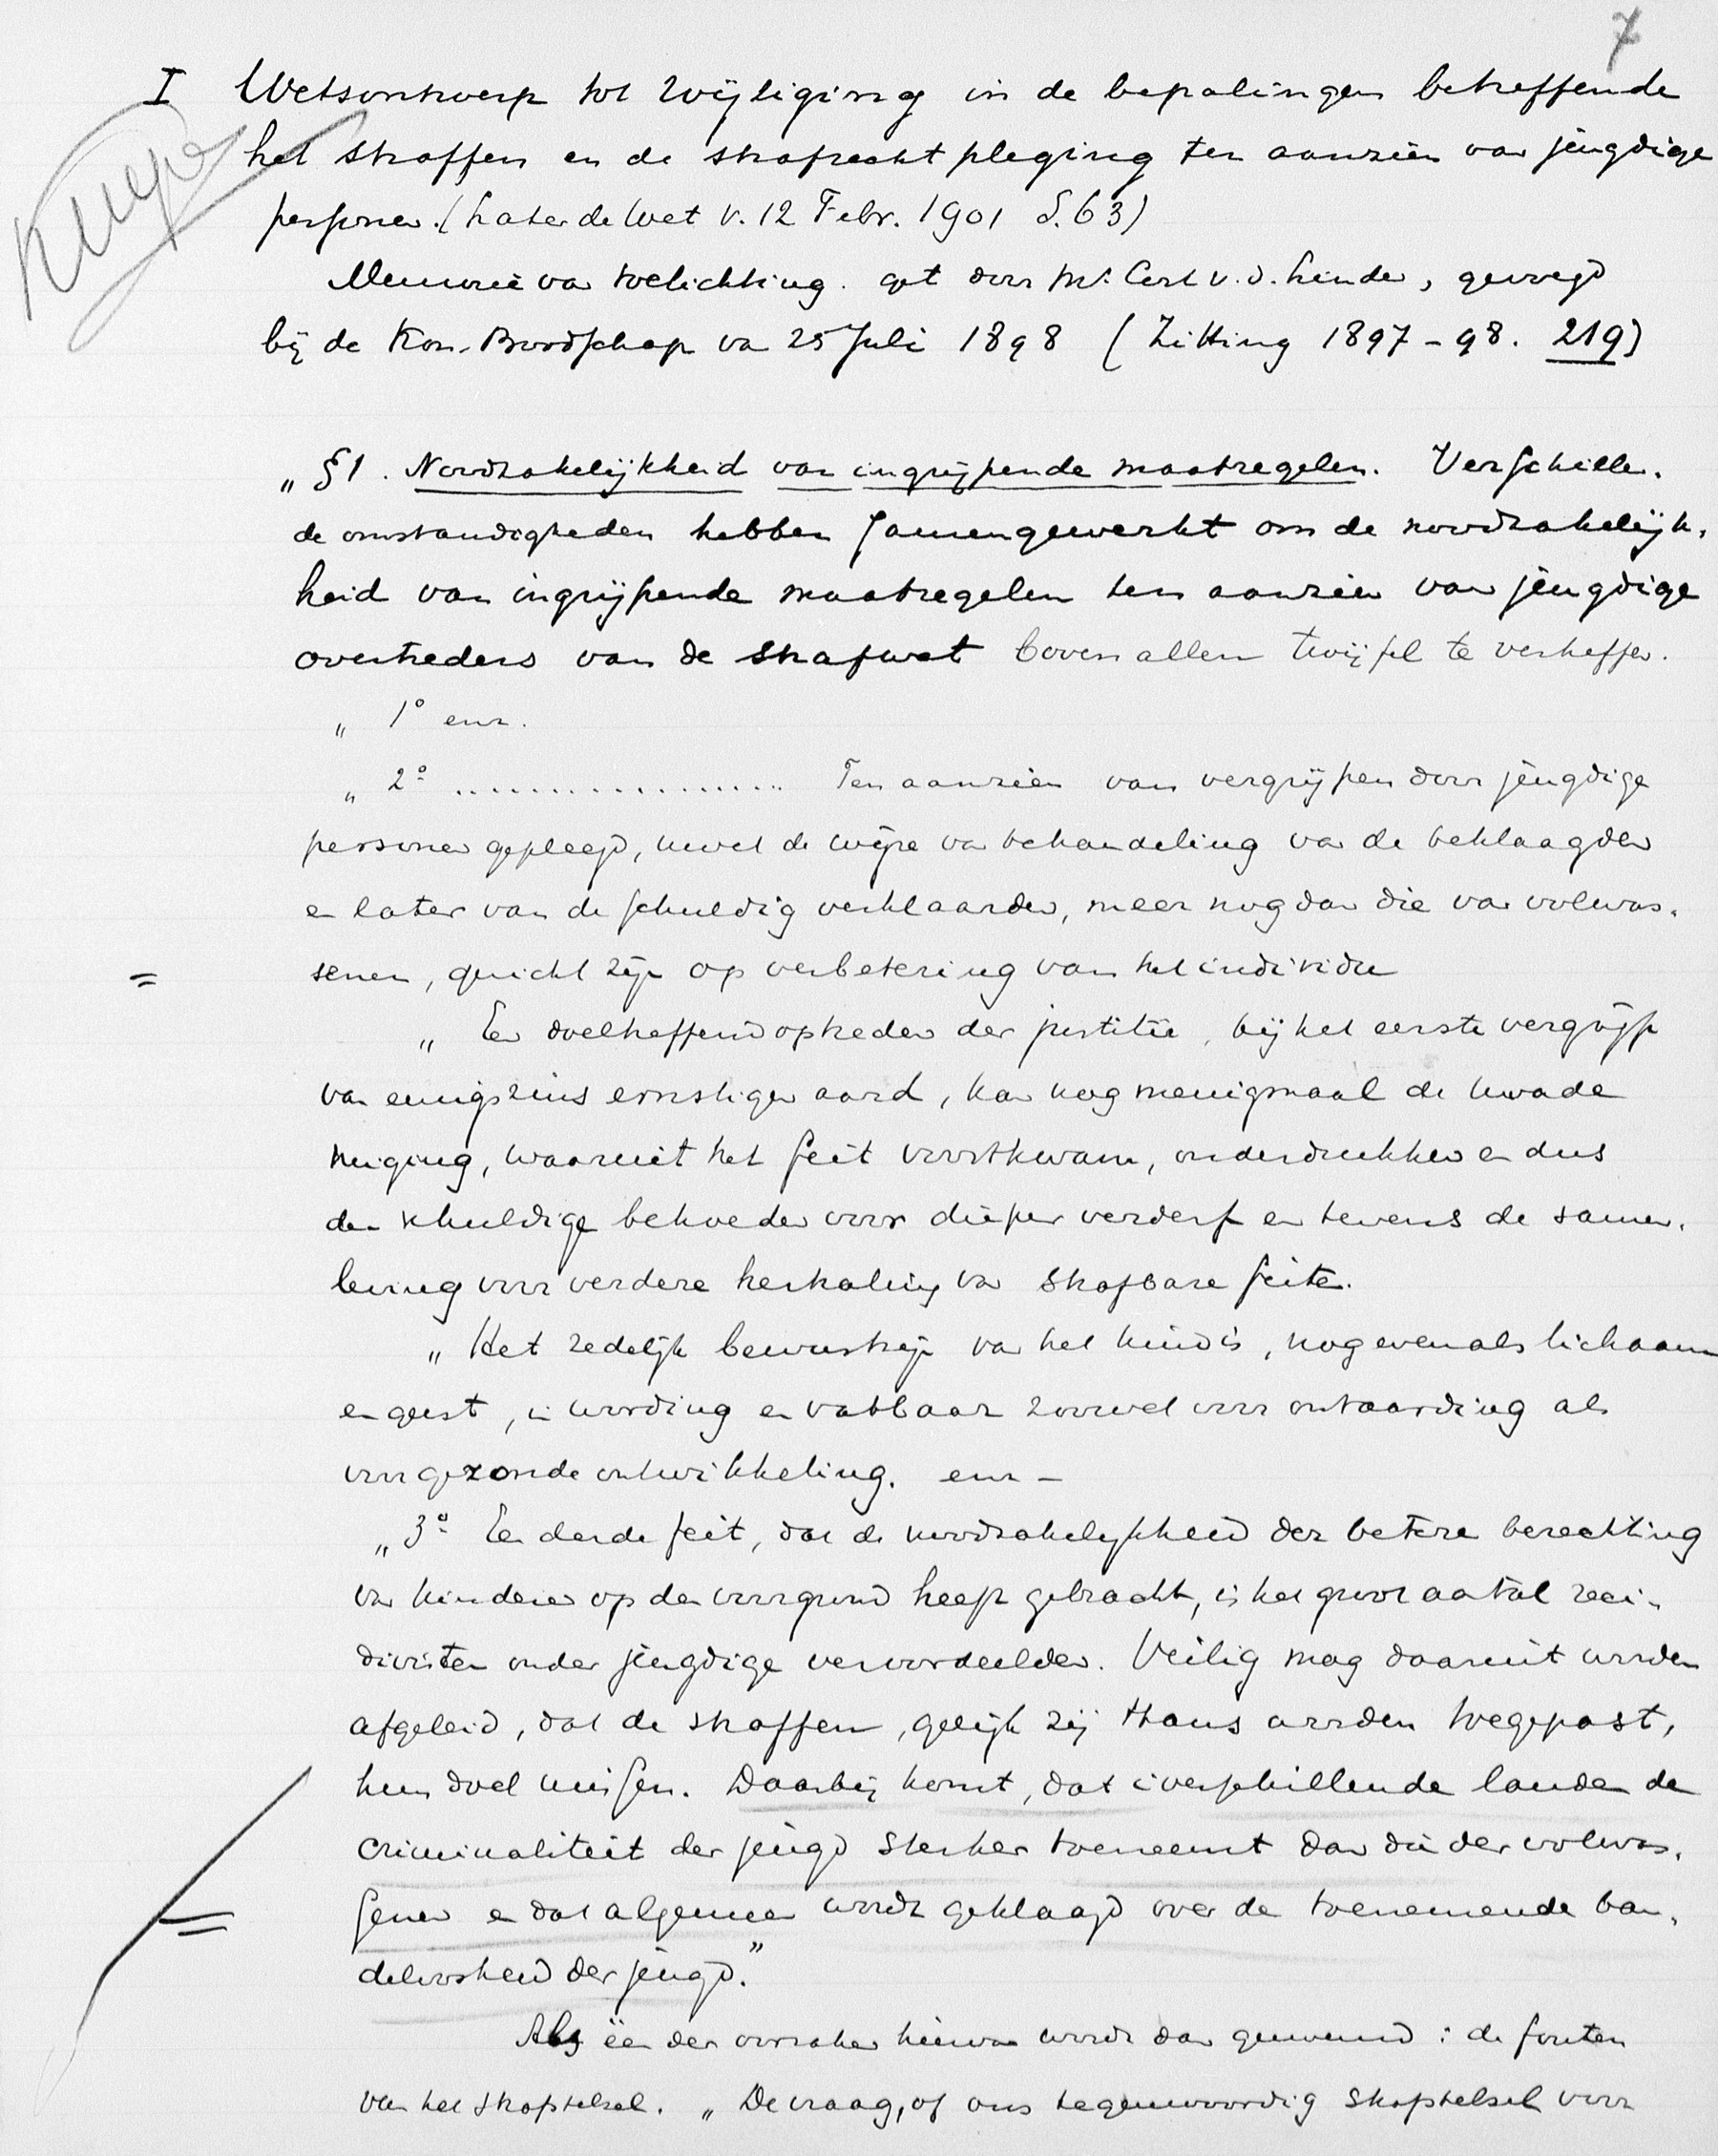 7
I Wetsontwerp tot wijziging in de bepalingen betreffende
het straffen en de strafrechtpleging ten aanzien van jeugdige
personen. (Later de Wet v. 12 Febr. 1901 S. 63)
Memorie van toelichting. get door Mr. Cort v. d. Linden, gevoegd
bij de Kon. Boodschap van 25 Juli 1898 (Zitting 1897-98. 219)
„ §1. Noodzakelijkheid van ingrijpende maatregelen. Verschillen-
de omstandigheden hebben samengewerkt om de noodzakelijk-
heid van ingrijpende maatregelen ten aanzien van jeugdige
overtreders van de strafwet boven allen twijfel te verheffen.
„ 1º enz.
„ 2º .................... Ten aanzien van vergrijpen door jeugdige
personen gepleegd, moet de wijze van behandeling van de beklaagden
en later van de schuldig verklaarden, meer nog dan die van volwas-
= senen, gericht zijn op verbetering van het individu
„ Een doeltreffend optreden der justitie, bij het eerste vergrijp
van eenigszins ernstigen aard, kan nog menigmaal de kwade
neiging, waaruit het feit voortkwam, onderdrukken en dus
den schuldige behoeden voor dieper verderf en tevens de samen-
leving voor verdere herhaling van strafbare feiten.
„ Het zedelijk bewustzijn van het kind is, nog evenals lichaam
en geest, in wording en vatbaar zoowel voor ontaarding als
voor gezonde ontwikkeling. enz -
„ 3º Een derde feit, dat de noodzakelijkheid der betere berechting
van kinderen op den voorgrond heeft gebracht, is het groot aantal reci-
divisten onder jeugdige veroordeelden. Veilig mag daaruit worden
afgeleid, dat de straffen, gelijk zij thans worden toegepast,
hun doel missen. Daarbij komt, dat in verschillende landen de
criminaliteit der jeugd sterker toeneemt dan die der volwas-
= senen en dat algemeen wordt geklaagd over de toenemende ban-
deloosheid der jeugd."
Als één der oorzaken hiervan wordt dan genoemd: de fouten
van het strafstelsel. „ De vraag, of ons tegenwoordig strafstelsel voor